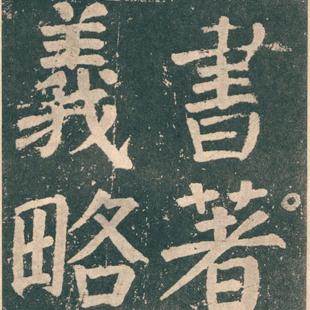 書著
義略